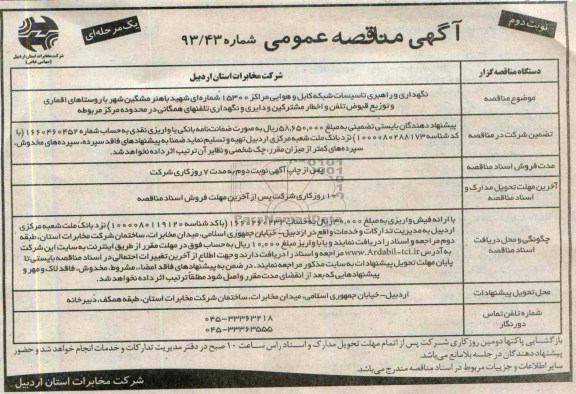 نوبت دوم
آگهی مناقصه عمومی شماره ۹۳/۴۳
یک مرحله‌ای
شرکت مخابرات استان اردبیل
(سهامی خاص)
دستگاه مناقصه گزار
شرکت مخابرات استان اردبیل
موضوع مناقصه
نگهداری و راهبری تاسیسات شبکه کابل و هوایی مراکز ۱۵۳۰۰ شماره‌ای شهید باهنر مشگین شهر با روستاهای اقماری
و توزیع قبوض تلفن و اخطار مشترکین و دایری و نگهداری تلفنهای همگانی در محدوده مرکز مربوطه
تضمین شرکت در مناقصه
پیشنهاد دهندگان بایستی تضمینی به مبلغ ۵۸,۶۵۰,۰۰۰ ریال به صورت ضمانت‌نامه بانکی یا واریزی نقدی به حساب شماره ۱۶۶۰۴۶۰۴۵۲ (با
کد شناسه ۱۰۰۰۰۸۰۲۸۸۱۷۳) نزد بانک ملت شعبه مرکزی اردبیل تهیه و تسلیم نماید ضمنا به پیشنهادهای فاقد سپرده، سپرده‌های مخدوش،
سپرده‌های کمتر از میزان مقرر، چک شخصی و نظایر آن ترتیب اثر داده نخواهد شد.
مدت فروش اسناد مناقصه
پس از چاپ آگهی نوبت دوم به مدت ۷ روز کاری شرکت
آخرین مهلت تحویل مدارک و
اسناد مناقصه
۱۰ روز کاری شرکت پس از آخرین مهلت فروش اسناد مناقصه
چگونگی و محل دریافت
اسناد مناقصه
با ارائه فیش واریزی به مبلغ ریال به حساب (با کد شناسه ۱۰۰۰۰۸۰۱۱۹۱۲۰) نزد بانک ملت شعبه مرکزی
اردبیل به مدیریت تدارکات و خدمات واقع در اردبیل - خیابان جمهوری اسلامی، میدان مخابرات، ساختمان شرکت مخابرات استان، طبقه
دوم مراجعه و اسناد را دریافت نمایند و یا با واریز مبلغ ۱۰,۰۰۰ ریال به حساب فوق در مهلت مقرر از طریق اینترنت به سایت این شرکت
به آدرس www.Ardabil-tci.ir مراجعه و اسناد را دریافت دارند و جهت اطلاع از آخرین تغییرات احتمالی در اسناد مناقصه بایستی تا
پایان مهلت تحویل پیشنهادات به سایت مذکور مراجعه نمایند. در ضمن به پیشنهادهای فاقد امضاء، مشروط، مخدوش، فاقد لاک و مهر و
پیشنهادهایی که بعد از انقضای مدت مقرر واصل شود مطلقا ترتیب اثر داده نخواهد شد.
محل تحویل پیشنهادات
اردبیل - خیابان جمهوری اسلامی، میدان مخابرات، ساختمان شرکت مخابرات استان، طبقه همکف، دبیرخانه
شماره تلفن تماس
دورنگار
۰۴۵-۳۳۳۶۳۲۱۸
۰۴۵-۳۳۳۶۳۵۵۵
بازگشایی پاکتها دومین روز کاری شرکت پس از اتمام مهلت تحویل مدارک و اسناد راس ساعت ۱۰ صبح در دفتر مدیریت تدارکات و خدمات انجام خواهد شد و حضور
پیشنهاد دهندگان در جلسه بلامانع می‌باشد.
سایر اطلاعات و جزییات مربوط در اسناد مناقصه مندرج می‌باشد.
شرکت مخابرات استان اردبیل